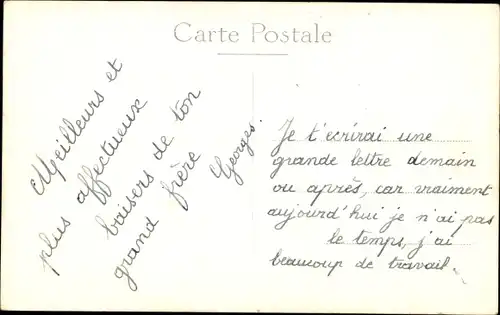 Carte Postale
Meilleurs et
plus affectueux
baisers de ton
grand frère
Georges.
Je t'ecrirai une
grande lettre demain
ou après, car vraiment
aujourd'hui je n'ai pas
le temps, j'ai
beaucoup de travail.